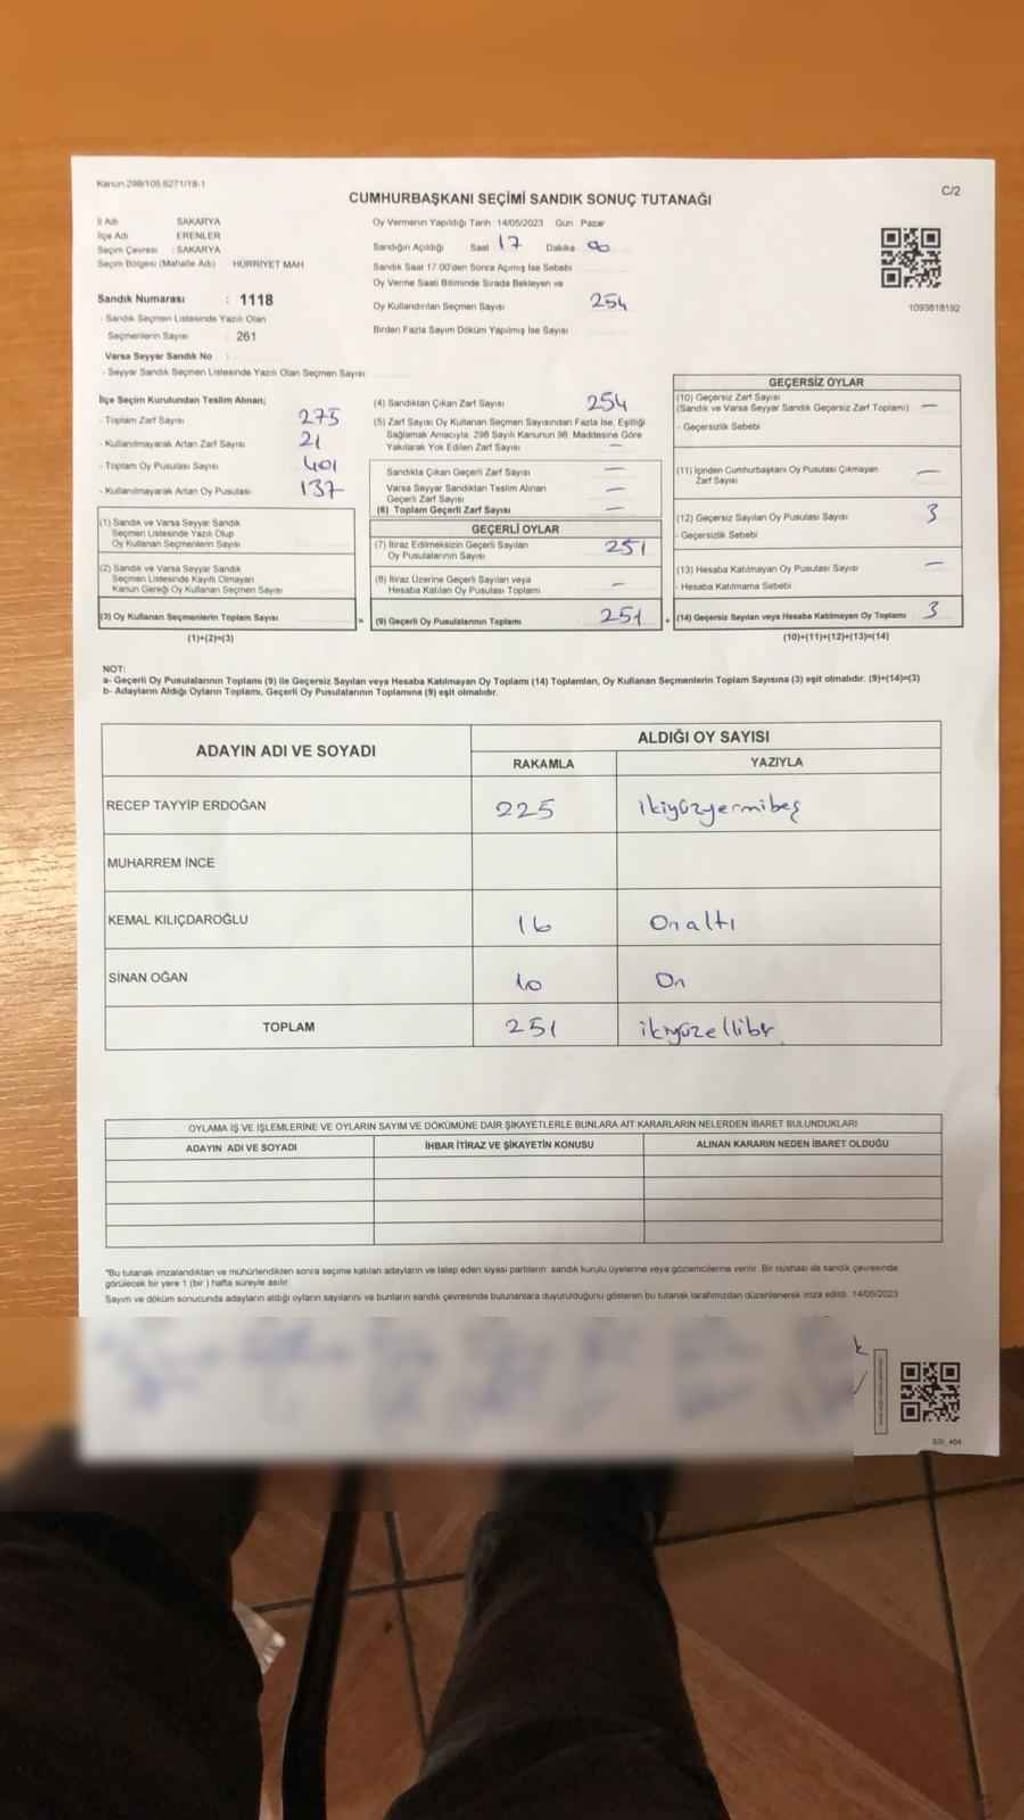 Kanun 298/105,6271/18-1
C/2
CUMHURBAŞKANI SEÇİMİ SANDIK SONUÇ TUTANAĞI
İl Adı SAKARYA
İlçe Adı ERENLER
Seçim Çevresi : SAKARYA
Seçim Bölgesi (Mahalle Adı) HÜRRİYET MAH
Sandık Numarası : 1118
- Sandık Seçmen Listesinde Yazılı Olan
Seçmenlerin Sayısı 261
Varsa Seyyar Sandık No :
- Seyyar Sandık Seçmen Listesinde Yazılı Olan Seçmen Sayısı
Oy Vermenin Yapıldığı Tarih 14/05/2023 Gün Pazar
Sandığın Açıldığı Saat 17 Dakika
Sandık Saat 17.00'den Sonra Açılmış İse Sebebi
Oy Verme Saati Bitiminde Sırada Bekleyen ve
Oy Kullandırılan Seçmen Sayısı 254
Birden Fazla Sayım Döküm Yapılmış İse Sayısı
1093618192
İlçe Seçim Kurulundan Teslim Alınan;
- Toplam Zarf Sayısı 275
- Kullanılmayarak Artan Zarf Sayısı 21
- Toplam Oy Pusulası Sayısı 401
- Kullanılmayarak Artan Oy Pusulası 137
(1) Sandık ve Varsa Seyyar Sandık
Seçmen Listesinde Yazılı Olup
Oy Kullanan Seçmenlerin Sayısı
(2) Sandık ve Varsa Seyyar Sandık
Seçmen Listesinde Kayıtlı Olmayan
Kanun Gereği Oy Kullanan Seçmen Sayısı
(3) Oy Kullanan Seçmenlerin Toplam Sayısı
(1)+(2)=(3)
(4) Sandıktan Çıkan Zarf Sayısı 254
(5) Zarf Sayısı Oy Kullanan Seçmen Sayısından Fazla İse, Eşitliği
Sağlamak Amacıyla, 298 Sayılı Kanunun 98. Maddesine Göre
Yakılarak Yok Edilen Zarf Sayısı —
Sandıkta Çıkan Geçerli Zarf Sayısı —
Varsa Seyyar Sandıktan Teslim Alınan
Geçerli Zarf Sayısı —
(6) Toplam Geçerli Zarf Sayısı —
GEÇERLİ OYLAR
(7) İtiraz Edilmeksizin Geçerli Sayılan
Oy Pusulalarının Sayısı 251
(8) İtiraz Üzerine Geçerli Sayılan veya
Hesaba Katılan Oy Pusulası Toplamı —
= (9) Geçerli Oy Pusulalarının Toplamı 251
GEÇERSİZ OYLAR
(10) Geçersiz Zarf Sayısı
(Sandık ve Varsa Seyyar Sandık Geçersiz Zarf Toplamı) —
- Geçersizlik Sebebi
(11) İçinden Cumhurbaşkanı Oy Pusulası Çıkmayan
Zarf Sayısı —
(12) Geçersiz Sayılan Oy Pusulası Sayısı 3
- Geçersizlik Sebebi
(13) Hesaba Katılmayan Oy Pusulası Sayısı —
- Hesaba Katılmama Sebebi
+ (14) Geçersiz Sayılan veya Hesaba Katılmayan Oy Toplamı 3
(10)+(11)+(12)+(13)=(14)
NOT:
a- Geçerli Oy Pusulalarının Toplamı (9) ile Geçersiz Sayılan veya Hesaba Katılmayan Oy Toplamı (14) Toplamları, Oy Kullanan Seçmenlerin Toplam Sayısına (3) eşit olmalıdır. (9)+(14)=(3)
b- Adayların Aldığı Oyların Toplamı, Geçerli Oy Pusulalarının Toplamına (9) eşit olmalıdır.
ADAYIN ADI VE SOYADI
ALDIĞI OY SAYISI
RAKAMLA YAZIYLA
RECEP TAYYİP ERDOĞAN 225 ikiyüzyermibeş
MUHARREM İNCE
KEMAL KILIÇDAROĞLU 16 On altı
SİNAN OĞAN 10 On
TOPLAM 251 ikiyüzellibr
OYLAMA İŞ VE İŞLEMLERİNE VE OYLARIN SAYIM VE DÖKÜMÜNE DAİR ŞİKAYETLERLE BUNLARA AİT KARARLARIN NELERDEN İBARET BULUNDUKLARI
ADAYIN ADI VE SOYADI İHBAR İTİRAZ VE ŞİKAYETİN KONUSU ALINAN KARARIN NEDEN İBARET OLDUĞU
*Bu tutanak imzalandıktan ve mühürlendikten sonra seçime katılan adayların ve talep eden siyasi partilerin sandık kurulu üyelerine veya gözlemcilerine verilir. Bir nüshası da sandık çevresinde
görülecek bir yere 1 (bir) hafta süreyle asılır.
Sayım ve döküm sonucunda adayların aldığı oyların sayılarını ve bunların sandık çevresinde bulunanlara duyurulduğunu gösteren bu tutanak tarafımızdan düzenlenerek imza edildi. 14/05/2023